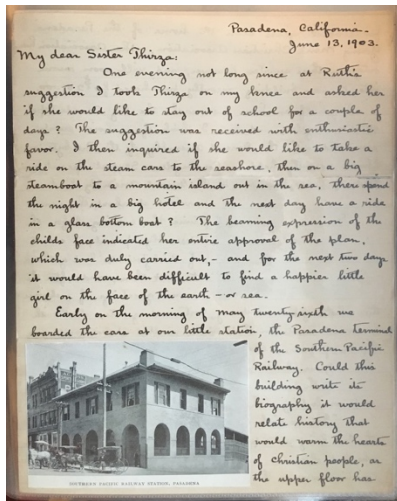 Pasadena, California.
June 13, 1903.
My dear Sister Thirza:
One evening not long since at Ruth's
suggestion I took Thirza on my knee and asked her
if she would like to stay out of school for a couple of
days? The suggestion was received with enthusiastic
favor. I then inquired if she would like to take a
ride on the steam cars to the seashore, then on a big
steamboat to a mountain island out in the sea, there spend
the night in a big hotel and the next day have a ride
in a glass bottom boat? The beaming expression of the
childs face indicated her entire approval of the plan,
which was duly carried out,- and for the next two days
it would have been difficult to find a happier little
girl on the face of the earth - or sea.
Early on the morning of May twenty-sixth we
boarded the cars at our little station, the Pasadena terminal
of the Southern Pacific
Railway. Could this
building write its
biography it would
relate history that
would warm the hearts
of Christian people, as
the upper floor has
SOUTHERN PACIFIC RAILWAY STATION, PASADENA